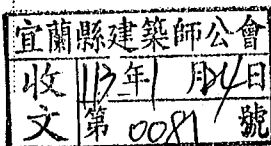 宜蘭縣建築師公會
收文 113年1月24日
第0081號